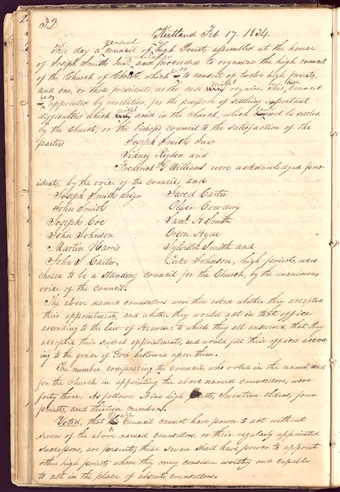 32
Kirtland Feb 17 1834.
This day a general council of High Priests assembled at the house
of Joseph Smith Junr. and proceeded to organize the high council
of the Church of Christ, which was to consist of twelve high priests,
and one, or three presidents, as the case might require. This council
was appointed by revelation, for the purpose of settling important
difficulties which might arise in the church, which could not be settled
by the Church, or the bishop's council, to the satisfaction of the
parties
Joseph Smith Junr
Sidney Rigdon and
Frederick G Williams were acknowledged pres-
idents, by the voice of the council; and
Joseph Smith Senr Jared Carter
John Smith Oliver Cowdery
Joseph Coe Saml. H Smith
John Johnson Orson Hyde
Martin Harris Sylvester Smith and
John S. Carter Luke Johnson, high priests, were
chosen to be a standing council for the Church, by the unanimous
voice of the council.
The above named counsellors were then asked whether they accepted
their appointments, and whether they would act in that office
according to the law of Heaven: to which they all answered, that they
accepted their appointments, and would fill their offices accord-
ing to the grace of God bestowed upon them.
The number composing the council, who voted in the name, and
for the Church in appointing the above named counsellors, were
forty three: As follows: Nine high priests, seventeen elders, four
priests, and thirteen members.
Voted, that the council cannot have power to act without
seven of the above named counsellors, or their regularly appointed
successors, are present; these seven shall have power to appoint
other high priests whom they may consider worthy and capable
to act in the place of absent counsellors.